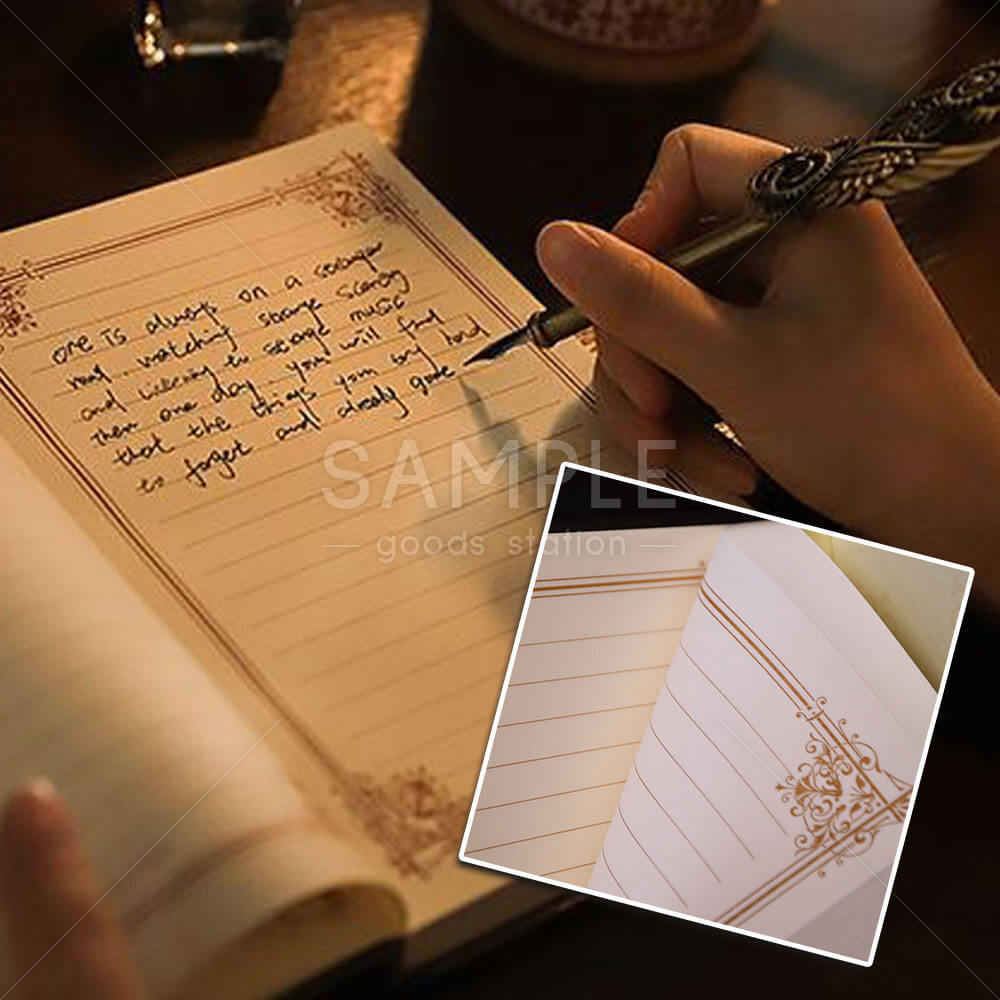 one is always on a stranger
road, watching strange scenery
and listening to strange music
Then one day, you will find
that the things you try hard
to forget and already gone
SAMPLE
goods station